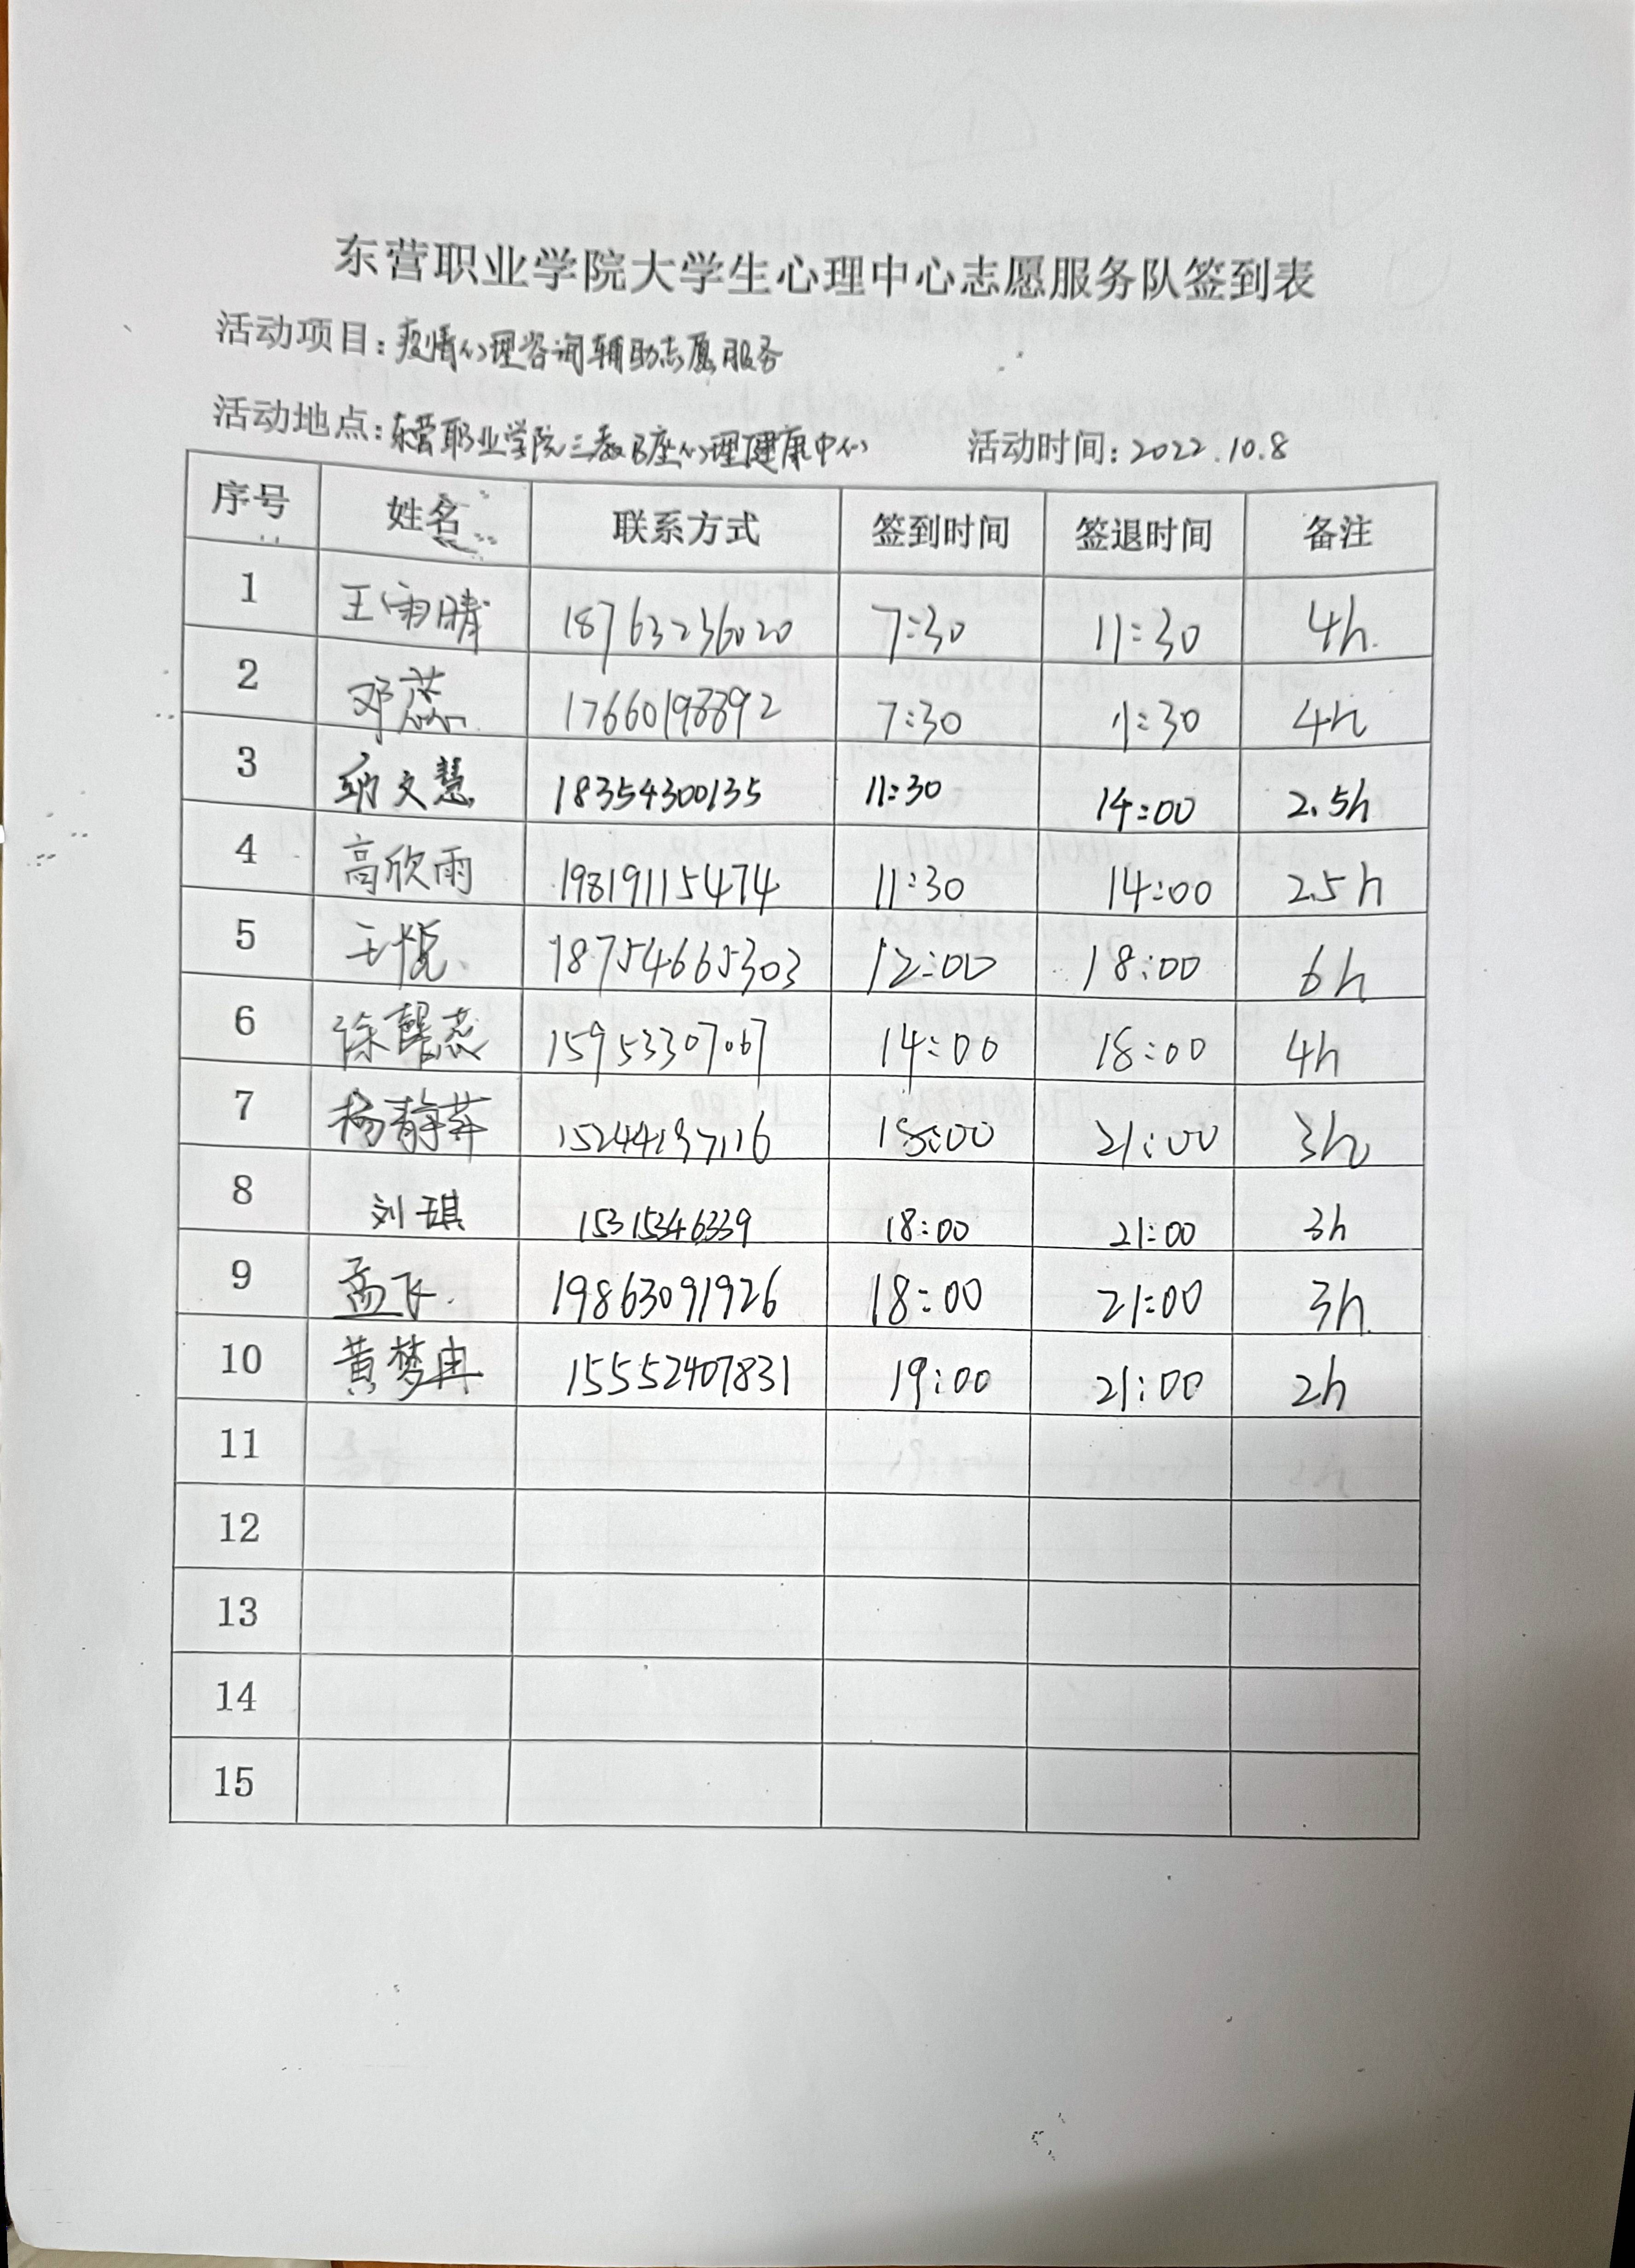 东营职业学院大学生心理中心志愿服务队签到表
活动项目：疫情心理咨询辅助志愿服务
活动地点：东营职业学院三教B座心理健康中心 活动时间：2022.10.8
序号 姓名 联系方式 签到时间 签退时间 备注
1 王雨晴 18763236020 7:30 11:30 4h
2 邓蕊 17660198892 7:30 11:30 4h
3 文慧 18354300135 11:30 14:00 2.5h
4 高欣雨 19819115474 11:30 14:00 2.5h
5 王悦 18754665303 12:00 18:00 6h
6 徐 15953307067 14:00 18:00 4h
7 杨静 15244197116 18:00 21:00 3h
8 刘琪 15315346339 18:00 21:00 3h
9 孟飞 19863091926 18:00 21:00 3h
10 黄梦冉 15552407831 19:00 21:00 2h
11
12
13
14
15